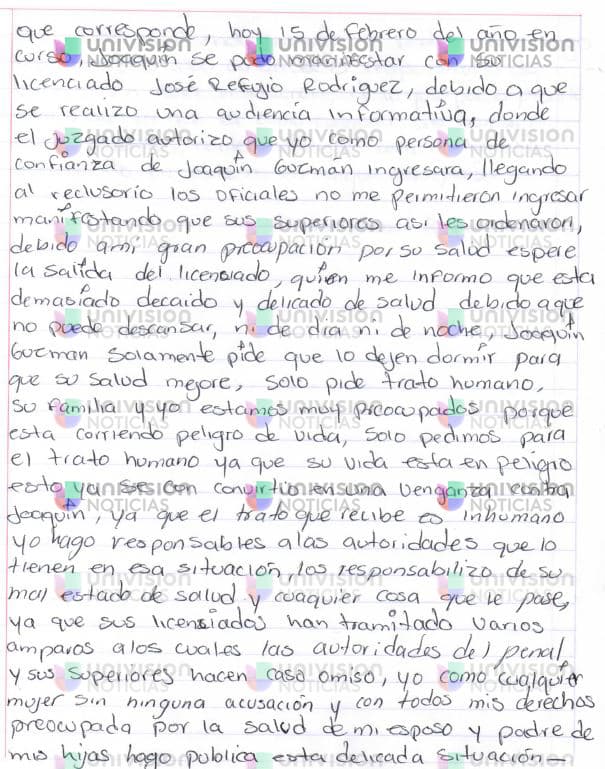 que corresponde, hoy 15 de febrero del año en
curso, Joaquin se pudo entrevistar con su
licenciado José Refugio Rodriguez, debido a que
se realizo una audiencia informativa, donde
el juzgado autorizo que yo como persona de
confianza de Joaquin Guzman ingresara, llegando
al reclusorio los oficiales no me permitieron ingresar
manifestando que sus superiores asi les ordenaron,
debido ami gran preocupación por su salud espere
la salida del licenciado, quien me informo que esta
demasiado decaido y delicado de salud debido aque
no puede descansar, ni de dia ni de noche, Joaquin
Guzman solamente pide que lo dejen dormir para
que su salud mejore, solo pide trato humano,
su familia y yo estamos muy preocupados porque
esta corriendo peligro de vida, solo pedimos para
el trato humano ya que su vida esta en peligro
esto ya se convirtio en una venganza contra
Joaquin, ya que el trato que recibe es inhumano
yo hago responsables alas autoridades que lo
tienen en esa situación, los responsabilizo de su
mal estado de salud y cuaquier cosa que le pase,
ya que sus licensiados han tramitado varios
amparos alos cuales las autoridades del penal
y sus superiores hacen caso omiso, yo como cualquier
mujer sin ninguna acusación y con todos mis derechos
preocupada por la salud de mi esposo y padre de
mis hijas hago publica esta delicada situación-